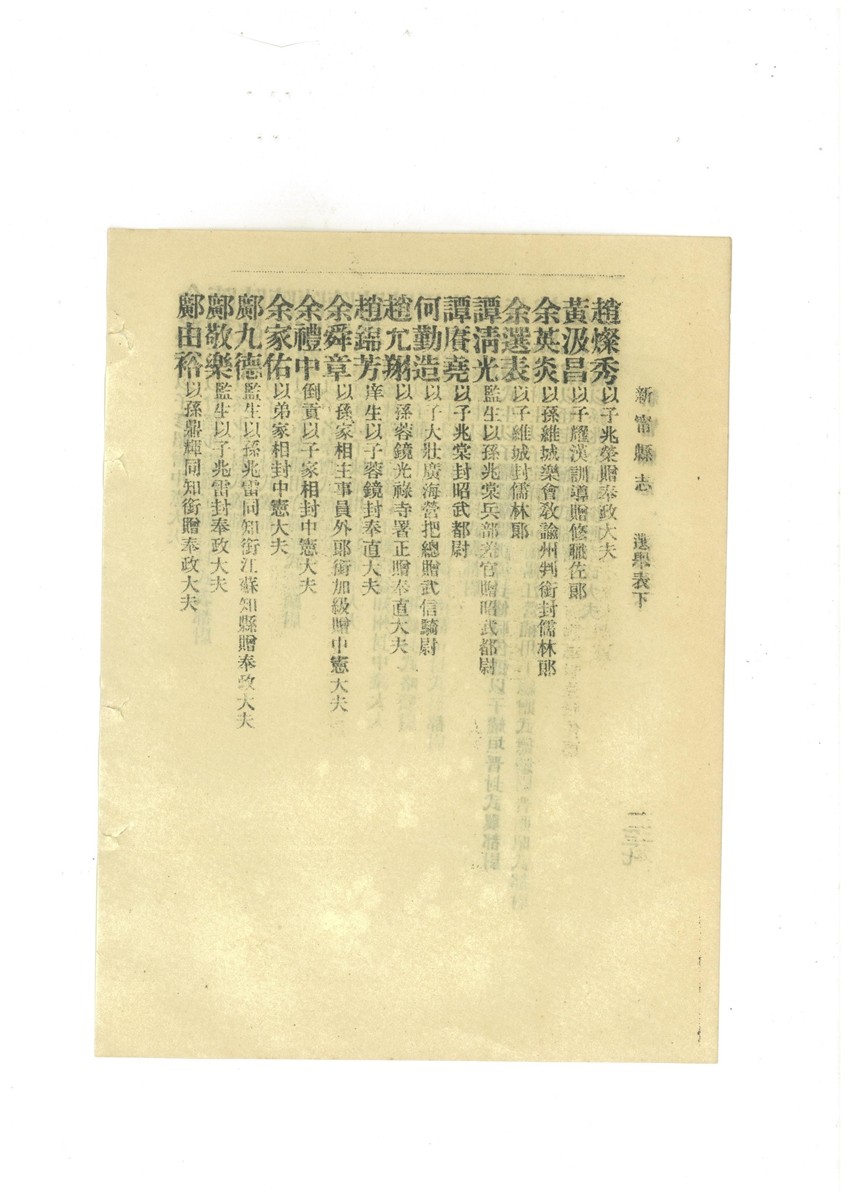 新甯縣志 選舉表下
趙燦秀以子兆棠贈奉政大夫
黃汲昌以子耀漢訓導贈修職佐郞
余英炎以孫維城樂會敎諭州判銜封儒林郞
余選表以子維城封儒林郞
譚淸光監生以孫兆棠兵部差官贈昭武都尉
譚賡堯以子兆棠封昭武都尉
何勤造以子大壯廣海營把總贈武信騎尉
趙允翔以孫蓉鏡光祿寺署正贈奉直大夫
趙錦芳庠生以子蓉鏡封奉直大夫
余舜章以孫家相主事員外郞銜加級贈中憲大夫
余禮中例貢以子家相封中憲大夫
余家佑以弟家相封中憲大夫
鄺九德監生以孫兆雷同知銜江蘇知縣贈奉政大夫
鄺敬樂監生以子兆雷封奉政大夫
鄺由裕以孫鼎輝同知銜贈奉政大夫